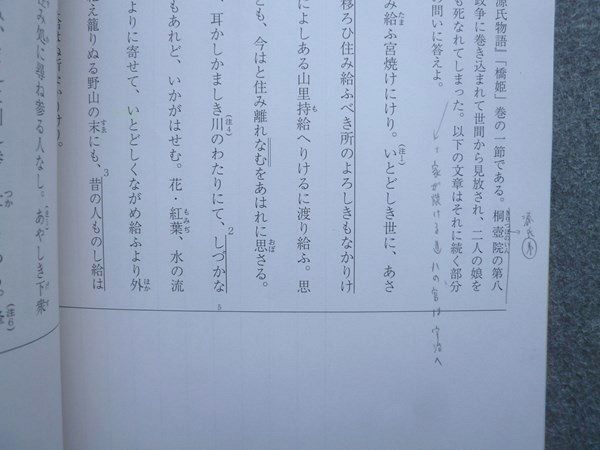 源氏物語』「橋姫」巻の一節である。桐壺院の第八
きりつぼのいん
源氏 弟
政争に巻き込まれて世間から見放され、二人の娘を
も死なれてしまった。以下の文章はそれに続く部分
の問いに答えよ。
家が焼ける 八の宮は宇治へ
み給ふ宮焼けにけり。いとどしき世に、あさ
たま
(注1)
移ろひ住み給ふべき所のよろしきもなかりけ
によしある山里持給へりけるに渡り給ふ。思
も
とも、今はと住み離れなむをあはれに思さる。
おぼ
、耳かしかましき川のわたりにて、しづかな
(注4)
2
5
もあれど、いかがはせむ。花・紅葉、水の流
もみぢ
よりに寄せて、いとどしくながめ給ふより外
ほか
え籠りぬる野山の末にも、昔の人ものし給は
すゑ
3
み処に尋ね参る人なし。あやしき下衆
げす
つか
(注6)